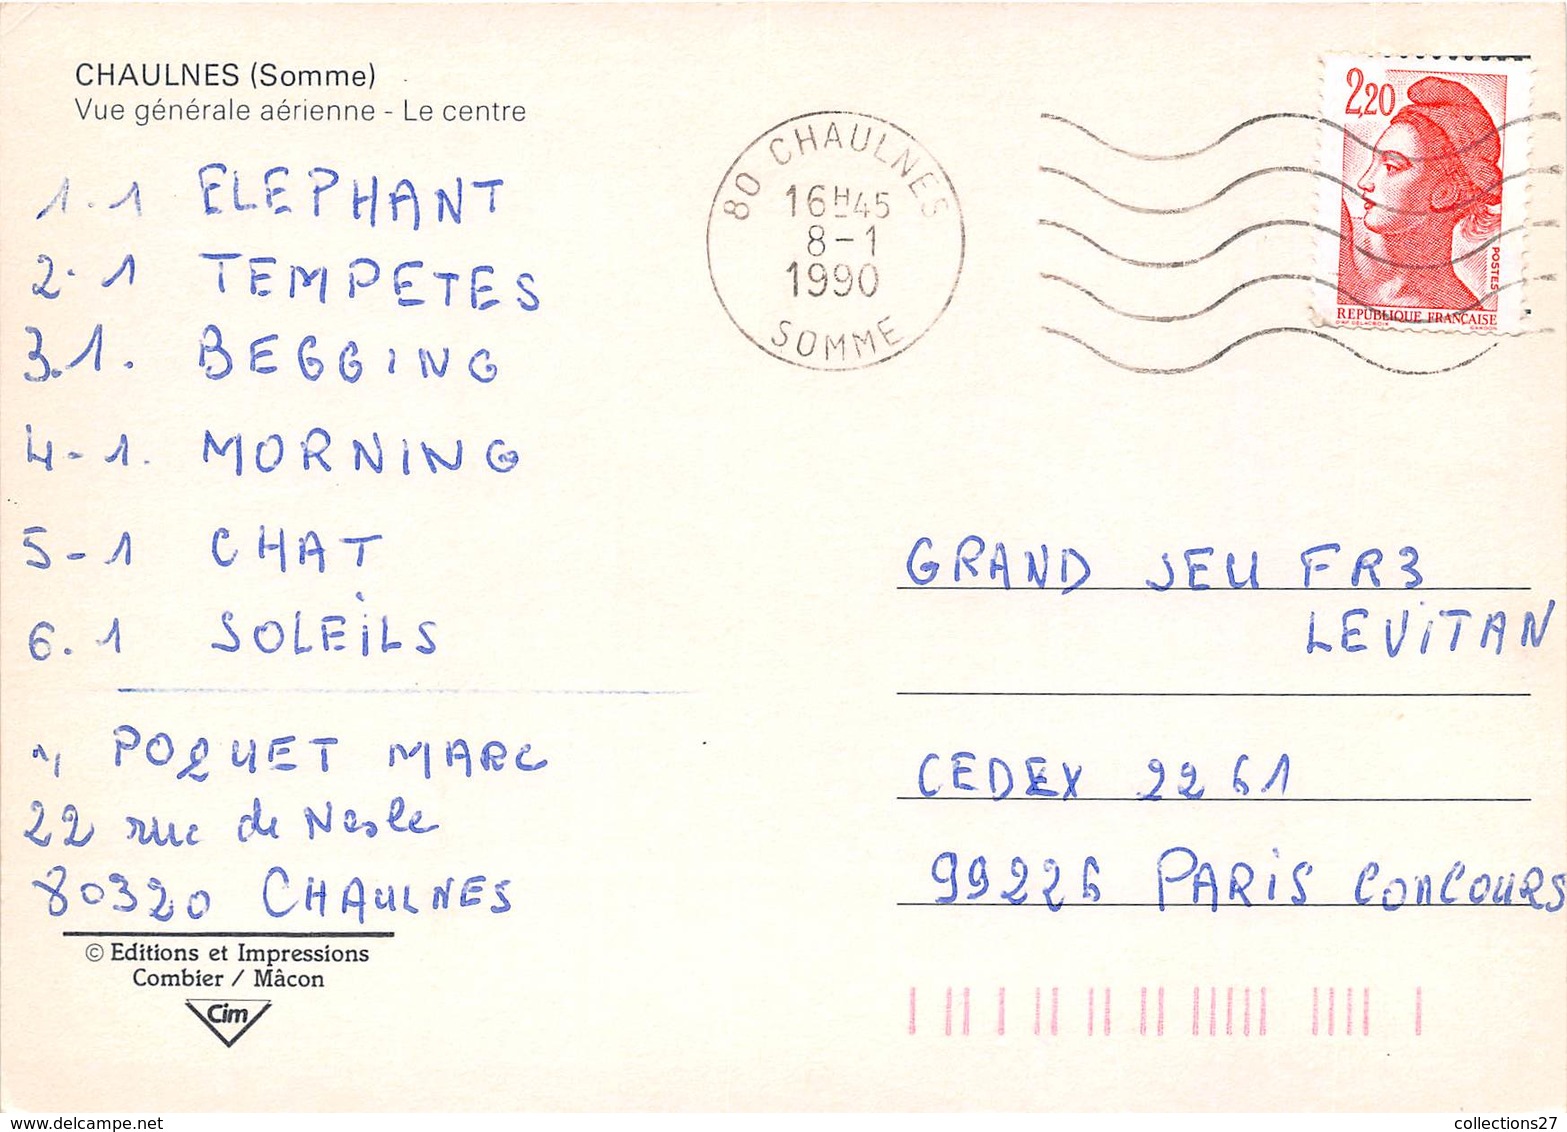 CHAULNES (Somme)
Vue générale aérienne - Le centre
1.1 ELEPHANT
2-1 TEMPETES
3.1. BEGGING
4-1. MORNING
5-1 CHAT
6.1 SOLEILS
POQUET MARC
22 rue de Nesle
80320 CHAULNES
© Editions et Impressions
Combier / Mâcon
Cim
80 CHAULNES
16H45
8-1
1990
SOMME
2,20
POSTES
REPUBLIQUE FRANÇAISE
D'AP. DELACROIX GANDON
GRAND JEU FR3
LEVITAN
CEDEX 2261
99226 PARIS CONCOURS
collections27